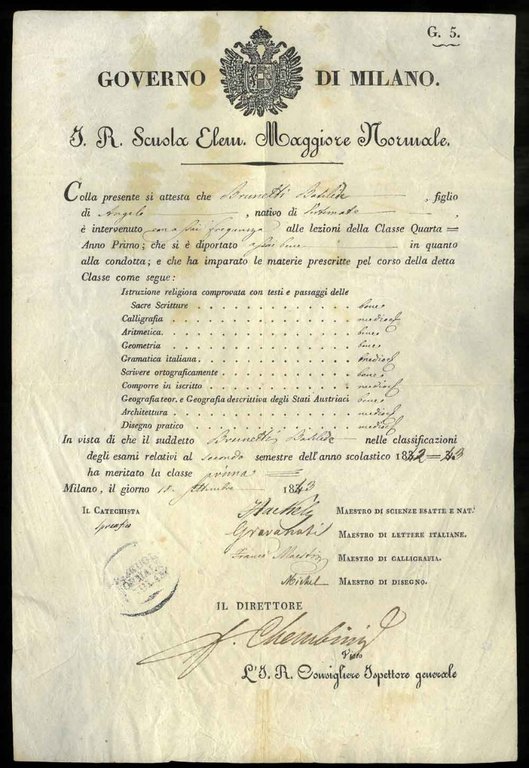 G. 5.
GOVERNO DI MILANO.
I. R. Scuola Elem. Maggiore Normale.
Colla presente si attesta che Brunetti Batilde, figlio
di Angelo, nativo di
è intervenuto con assai frequenza alle lezioni della Classe Quarta =
Anno Primo; che si è diportato assai bene in quanto
alla condotta; e che ha imparato le materie prescritte pel corso della detta
Classe come segue:
Istruzione religiosa comprovata con testi e passaggi delle
Sacre Scritture . . . . . . . . . . bene
Calligrafia . . . . . . . . . . medioc
Aritmetica. . . . . . . . . . . bene
Geometria . . . . . . . . . . bene
Gramatica italiana. . . . . . . . . . medioc
Scrivere ortograficamente . . . . . . . . . . bene
Comporre in iscritto . . . . . . . . . . medioc
Geografia teor. e Geografia descrittiva degli Stati Austriaci bene
Architettura . . . . . . . . . . medioc
Disegno pratico . . . . . . . . . . medioc
In vista di che il suddetto Brunetti Batilde nelle classificazioni
degli esami relativi al secondo semestre dell'anno scolastico 1842=43
ha meritato la classe prima
Milano, il giorno 10 settembre 1843
IL CATECHISTA
MAESTRO DI SCIENZE ESATTE E NAT.
Gravanati MAESTRO DI LETTERE ITALIANE.
Franc. Maestri MAESTRO DI CALLIGRAFIA.
Michel MAESTRO DI DISEGNO.
IL DIRETTORE
F. Cherubini
Visto
L'I. R. Consigliere Ispettore generale